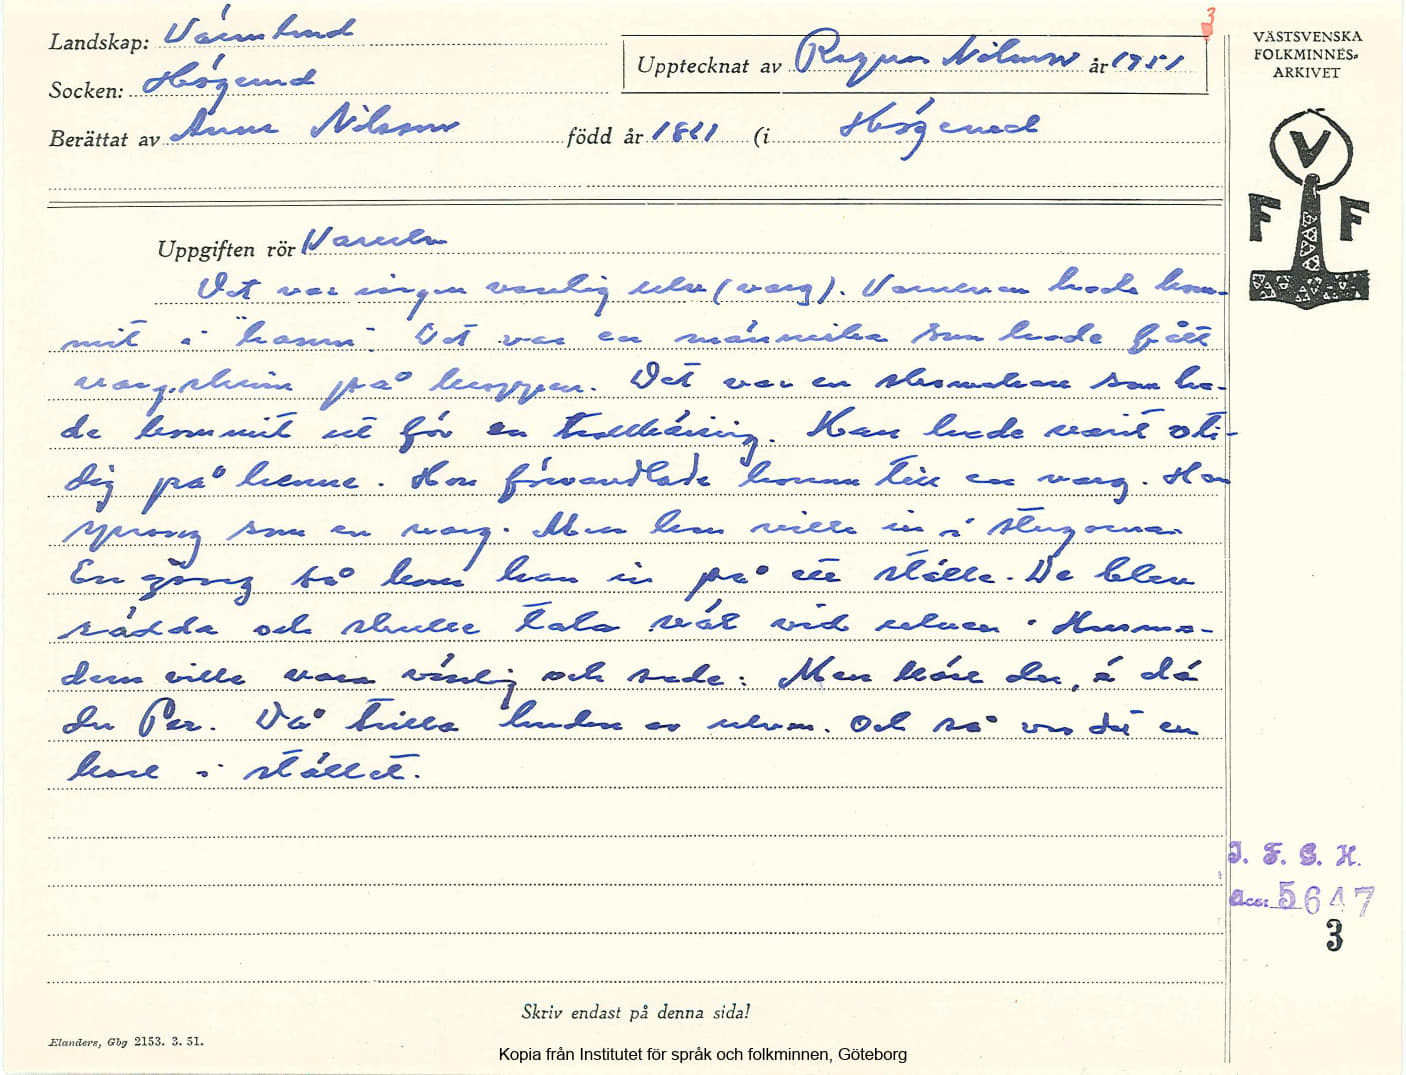 3
Landskap: Värmland
Socken: Högerud
Upptecknat av Ragnar Nilsson år 1951
VÄSTSVENSKA
FOLKMINNES-
ARKIVET
Berättat av Anna Nilsson född år (i Högerud
V
F F
Uppgiften rör Varulv
Det var ingen vanlig ulv (varg). Varulven hade kom-
mit i "hamn". Det var en människa som hade fått
vargskinn på kroppen. Det var en skomakare som ha-
de kommit ut för en trollkäring. Han hade varit oti-
dig på henne. Hon förvandlade honom till en varg. Han
sprang som en varg. Men han ville in i stugorna.
En gång så kom han in på ett ställe. De blev
rädda och skulle tala väl vid ulven. Husmo-
dern ville vara vänlig och sade: Men kära du, ä dä
du Per. Då trilla huden av ulven. Och så va det en
karl i stället.
I. F. G. H.
acc: 5647
3
Skriv endast på denna sida!
Elanders, Gbg 2153. 3. 51.
Kopia från Institutet för språk och folkminnen, Göteborg